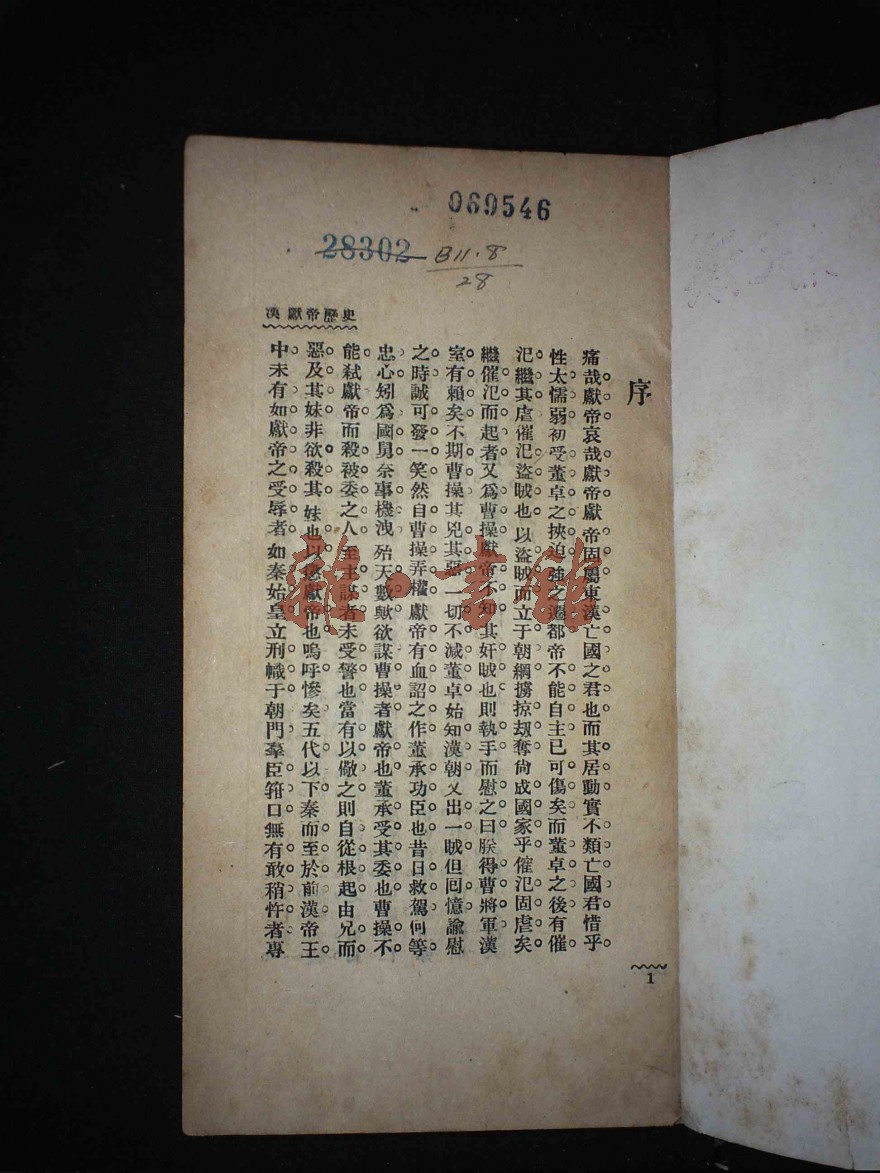 069546
28302
B11.8
28
漢獻帝歷史
序
痛哉獻帝哀哉獻帝獻帝固屬東漢亡國之君也而其居動實不類亡國君惜乎
性太懦弱初受董卓之挾迫強之遷都帝不能自主已可傷矣而董卓之後有傕
汜繼其虐傕汜盜賊也以盜賊而立于朝綱擄掠刼奪尙成國家乎傕汜固虐矣
繼傕汜而起者又爲曹操獻帝不知其奸賊也則執手而慰之曰朕得曹將軍漢
室有賴矣不期曹操其兇其惡一切不減董卓始知漢朝又出一賊但囘憶諭慰
之時誠可發一笑然自曹操弄權獻帝有血詔之作董承功臣也昔日救駕何等
忠心矧爲國舅奈事機洩殆天數歟欲謀曹操者獻帝也董承受其委也曹操不
能弒獻帝而殺被委之人至主謀者未受警也當有以儆之則自從根起由兄而
惡及其妹非欲殺其妹也以懲獻帝也嗚呼慘矣五代以下秦而至於前漢帝王
中未有如獻帝之受辱者如秦始皇立刑幟于朝門羣臣箝口無有敢稍忤者專
1
雜·書館